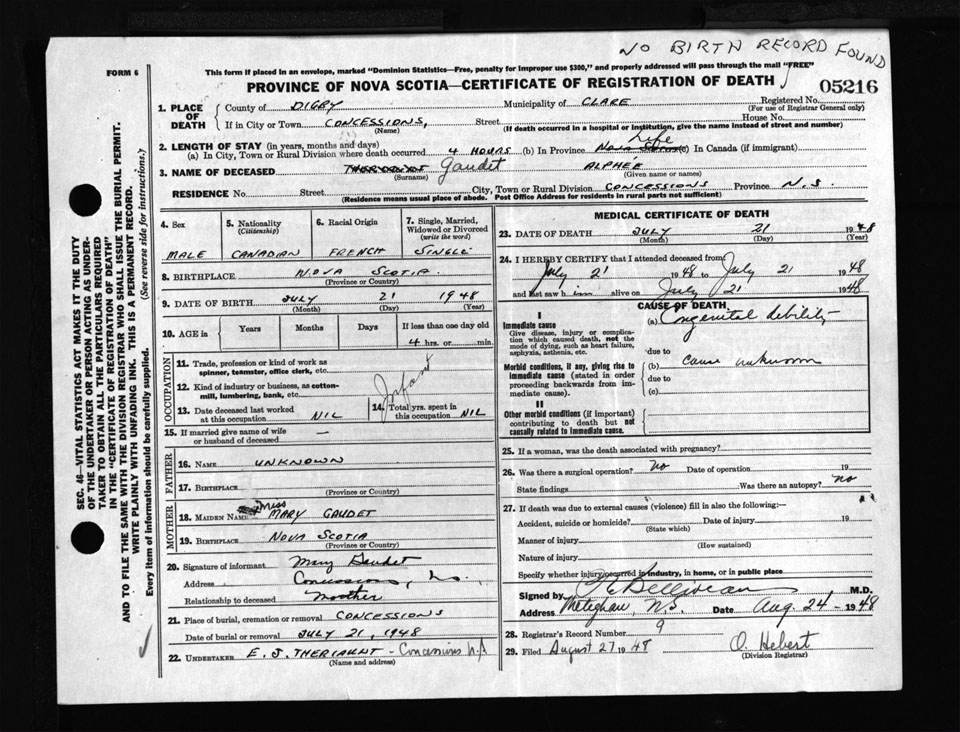 NO BIRTH RECORD FOUND
FORM 6
This form if placed in an envelope, marked "Dominion Statistics—Free, penalty for improper use $300," and properly addressed will pass through the mail "FREE"
PROVINCE OF NOVA SCOTIA—CERTIFICATE OF REGISTRATION OF DEATH
05216
1. PLACE OF DEATH
County of DIGBY Municipality of CLARE Registered No.
(For use of Registrar General only)
If in City or Town CONCESSIONS, Street House No.
(Name) (If death occurred in a hospital or institution, give the name instead of street and number)
2. LENGTH OF STAY (in years, months and days)
Life
(a) In City, Town or Rural Division where death occurred 4 HOURS (b) In Province Nova Scotia (c) In Canada (if immigrant)
3. NAME OF DECEASED Gaudet ALPHÉE
(Surname) (Given name or names)
RESIDENCE No. Street City, Town or Rural Division CONCESSIONS Province N.S.
(Residence means usual place of abode. Post Office Address for residents in rural parts not sufficient)
SEC. 46—VITAL STATISTICS ACT MAKES IT THE DUTY
OF THE UNDERTAKER OR PERSON ACTING AS UNDER-
TAKER TO OBTAIN ALL THE PARTICULARS REQUIRED
IN THE "CERTIFICATE OF REGISTRATION OF DEATH"
AND TO FILE THE SAME WITH THE DIVISION REGISTRAR WHO SHALL ISSUE THE BURIAL PERMIT.
WRITE PLAINLY WITH UNFADING INK. THIS IS A PERMANENT RECORD.
Every item of information should be carefully supplied. (See reverse side for instructions.)
4. Sex 5. Nationality (Citizenship) 6. Racial Origin 7. Single, Married, Widowed or Divorced (write the word)
MALE CANADIAN FRENCH SINGLE
8. BIRTHPLACE NOVA SCOTIA
(Province or Country)
9. DATE OF BIRTH JULY 21 1948
(Month) (Day) (Year)
10. AGE in Years Months Days If less than one day old
4 hrs. or min.
OCCUPATION
11. Trade, profession or kind of work as
spinner, teamster, office clerk, etc.
12. Kind of industry or business, as cotton-
mill, lumbering, bank, etc. Infant
13. Date deceased last worked
at this occupation NIL
14. Total yrs. spent in
this occupation NIL
15. If married give name of wife
or husband of deceased —
FATHER
16. NAME UNKNOWN
17. BIRTHPLACE
(Province or Country)
MOTHER
18. MAIDEN NAME Miss MARY GAUDET
19. BIRTHPLACE NOVA SCOTIA
(Province or Country)
20. Signature of informant Mary Gaudet
Address Concessions, N.S.
Relationship to deceased Mother
21. Place of burial, cremation or removal CONCESSIONS
Date of burial or removal JULY 21, 1948
22. UNDERTAKER E. J. THERIAULT - Concessions N.S
(Name and address)
MEDICAL CERTIFICATE OF DEATH
23. DATE OF DEATH JULY 21 1948
(Month) (Day) (Year)
24. I HEREBY CERTIFY that I attended deceased from
July 21 1948 to July 21 1948
and last saw him alive on July 21 1948
CAUSE OF DEATH
I
Immediate cause (a) Congenital debility
Give disease, injury or complica-
tion which caused death, not the
mode of dying, such as heart failure,
asphyxia, asthenia, etc.
due to
Morbid conditions, if any, giving rise to
immediate cause (stated in order
proceeding backwards from im-
mediate cause).
(b) cause unknown
due to
(c)
II
Other morbid conditions (if important)
contributing to death but not
causally related to immediate cause.
25. If a woman, was the death associated with pregnancy?
26. Was there a surgical operation? No Date of operation 19
State findings Was there an autopsy? no
27. If death was due to external causes (violence) fill in also the following:—
Accident, suicide or homicide? Date of injury 19
(State which)
Manner of injury
(How sustained)
Nature of injury
Specify whether injury occurred in industry, in home, or in public place
Signed by Belliveau M.D.
Address Meteghan, N.S. Date Aug. 24 - 1948
28. Registrar's Record Number 9
29. Filed August 27 1948 O. Hebert
(Division Registrar)